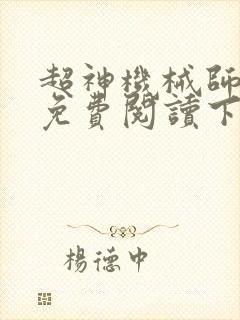 超神機械師
免費閱讀下
楊德中